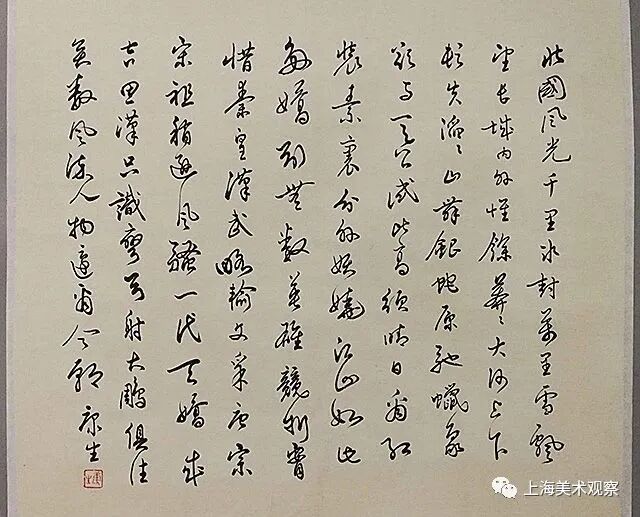 北國風光千里冰封萬里雪飄
望長城内外惟餘莽〻大河上下
頓失滔〻山舞銀蛇原馳蠟象
欲与天公試比高須晴日看红
裝素裹分外妖嬈江山如此
多嬌引無數英雄競折腰
惜秦皇漢武略輸文采唐宗
宋祖稍遜風騷一代天嬌成
吉思漢只識彎弓射大鵰俱往
矣數風流人物還看今朝 康生
上海美术观察